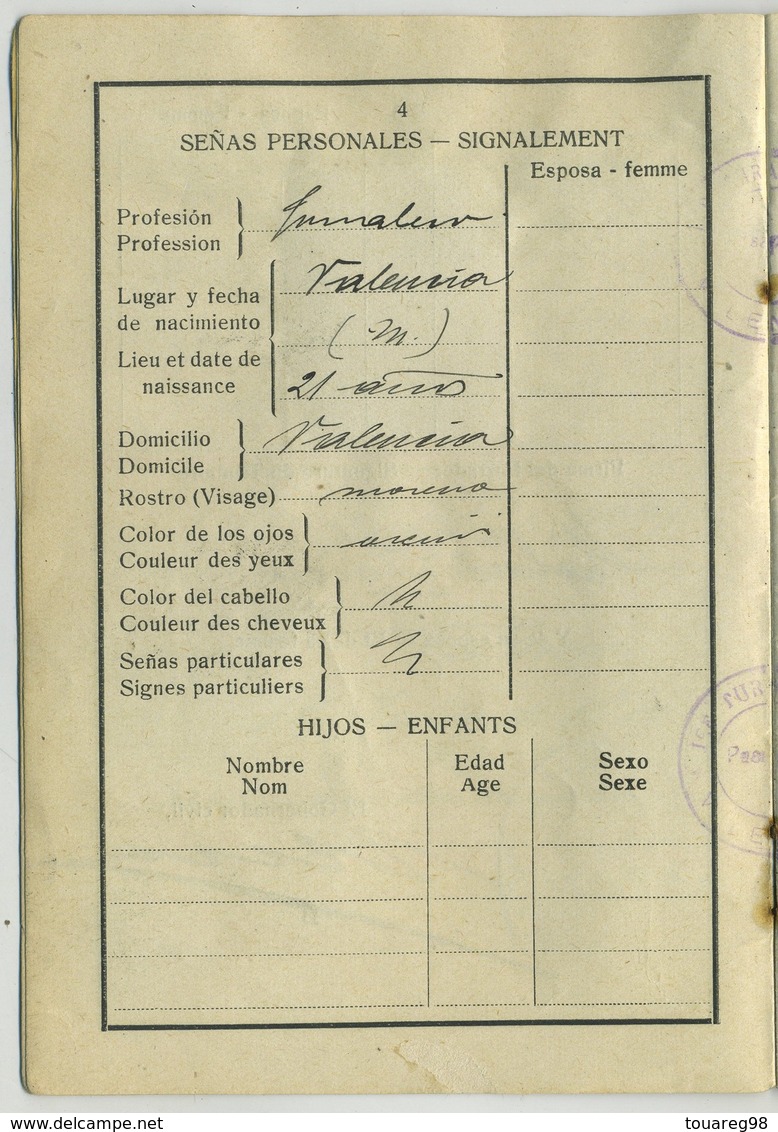 4
SEÑAS PERSONALES — SIGNALEMENT
Esposa - femme
Profesión
Profession
Jornalero
Lugar y fecha
de nacimiento
Lieu et date de
naissance
Valencia
(M.)
21 años
Domicilio
Domicile
Valencia
Rostro (Visage) moreno
Color de los ojos
Couleur des yeux
Color del cabello
Couleur des cheveux
Señas particulares
Signes particuliers
HIJOS — ENFANTS
Nombre
Nom
Edad
Age
Sexo
Sexe
www.delcampe.net
touareg98